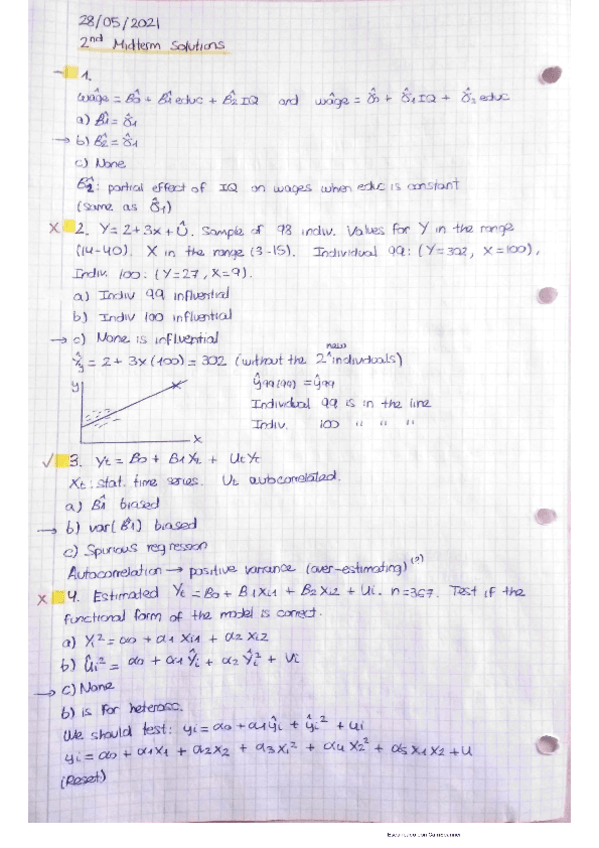 28/05/2021
2nd Midterm Solutions
1.
waĝe = B̂0 + B̂1 educ + B̂2 IQ and waĝe = δ̂0 + δ̂1 IQ + δ̂2 educ
a) B̂1 = δ̂1
→ b) B̂2 = δ̂1
c) None
B̂2: partial effect of IQ on wages when educ is constant
(same as δ̂1)
X 2. Y = 2 + 3x + Û. Sample of 98 indiv. Values for Y in the range
(14-40). X in the range (3-15). Individual 99: (Y=302, X=100),
Indiv. 100: (Y=27, X=9).
a) Indiv 99 influential
b) Indiv 100 influential
→ c) None is influential
= 2 + 3x(100) = 302 (without the 2 new individuals)
y
x
ŷ99(99) = ŷ99
Individual 99 is in the line
Indiv. 100 " " "
✓ 3. Yt = B0 + B1 Xt + Ut
Xt: stat. time series. Ut autocorrelated.
a) B̂1 biased
→ b) var(B̂1) biased
c) Spurious regression
Autocorrelation → positive variance (over-estimating) (?)
X 4. Estimated Yi = B0 + B1 Xi1 + B2 Xi2 + Ui. n=367. Test if the
functional form of the model is correct.
a) Yi² = α0 + α1 Xi1 + α2 Xi2
b) Ûi² = α0 + α1 Ŷi + α2 Ŷi² + Vi
→ c) None
b) is for heterosc.
We should test: yi = α0 + α1 ŷi + ŷi² + ui
yi = α0 + α1x1 + α2x2 + α3x1² + α4x2² + α5x1x2 + u
(Reset)